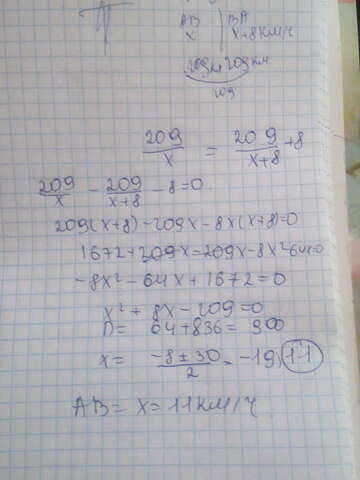 AB | BA
x | x+8 км/ч
209км, 209км
209
209/x = 209/x+8 + 8
209/x - 209/x+8 - 8=0
209(x+8)-209x-8x(x+8)=0
1672+209x=209x-8x²-64x=0
-8x²-64x+1672=0
x²+8x-209=0
D= 64+836= 900
x= -8±30/2 = -19; 11
AB= x= 11км/ч